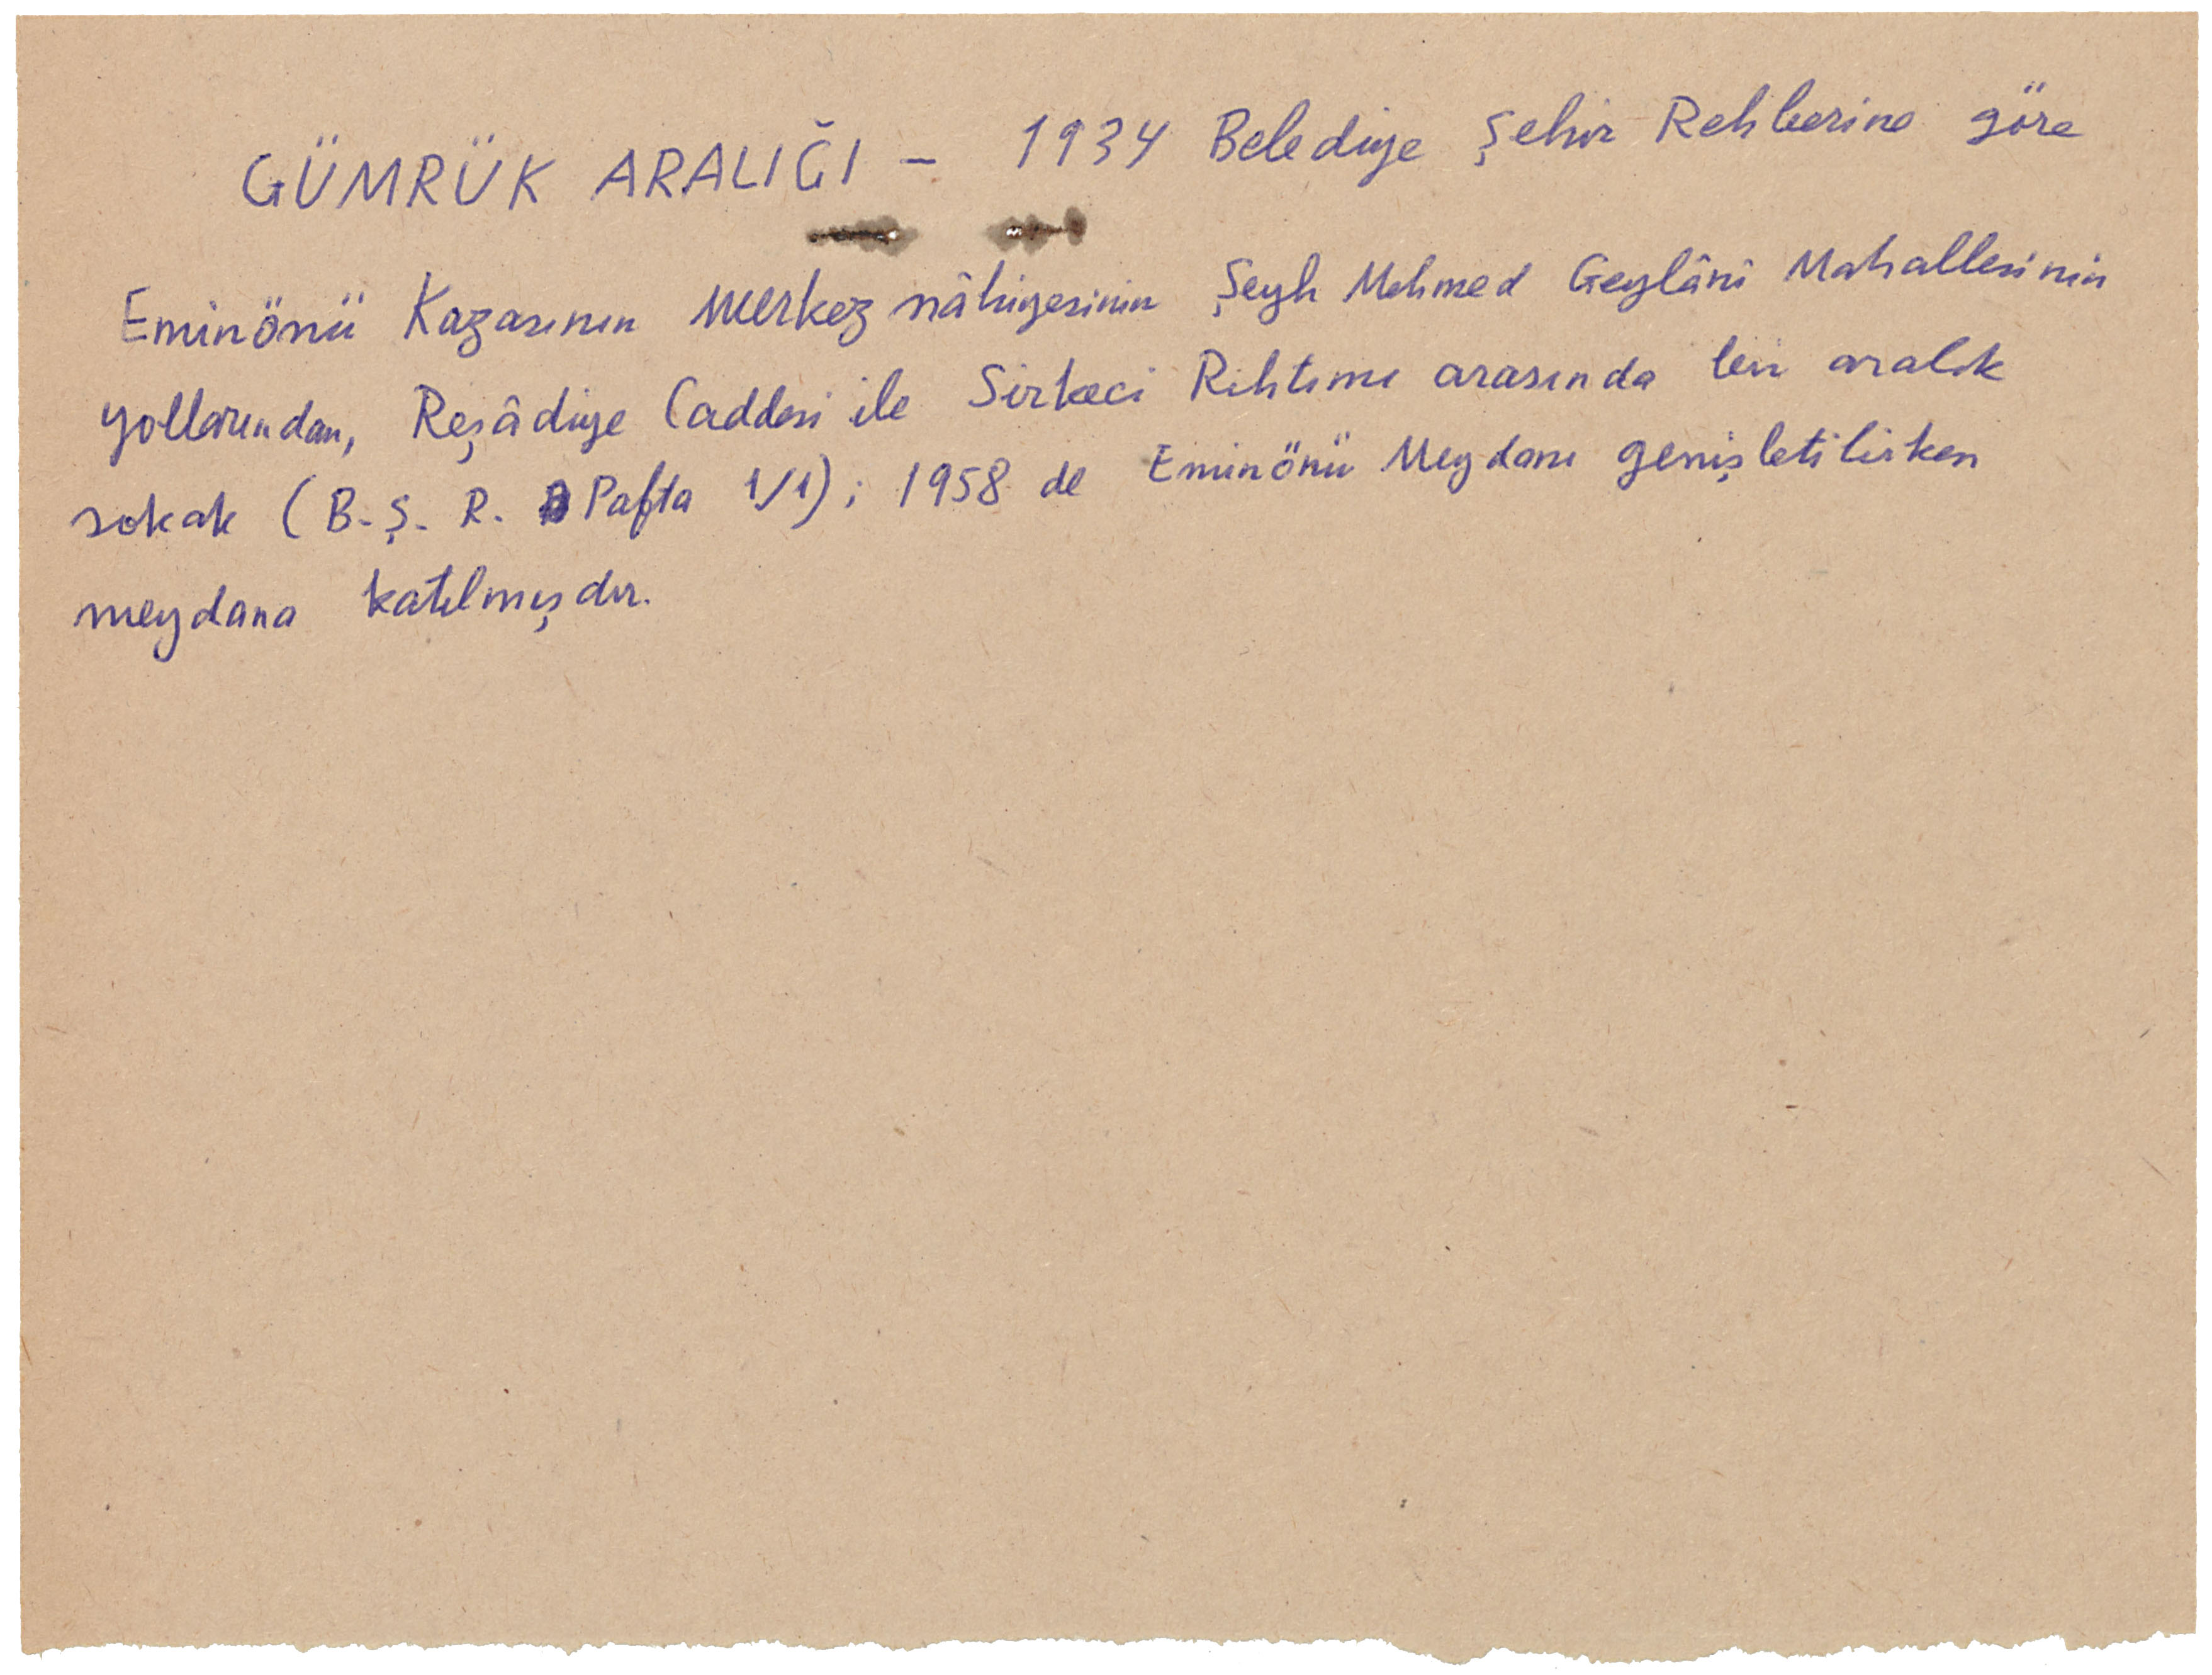 GÜMRÜK ARALIĞI – 1934 Belediye Şehir Rehberine göre
Eminönü Kazasının Merkez nâhiyesinin Şeyh Mehmed Geylânî Mahallesinin
yollarından, Reşâdiye Caddesi ile Sirkeci Rıhtımı arasında bir aralık
sokak (B. Ş. R. Pafta 1/1); 1958 de Eminönü Meydanı genişletilirken
meydana katılmışdır.